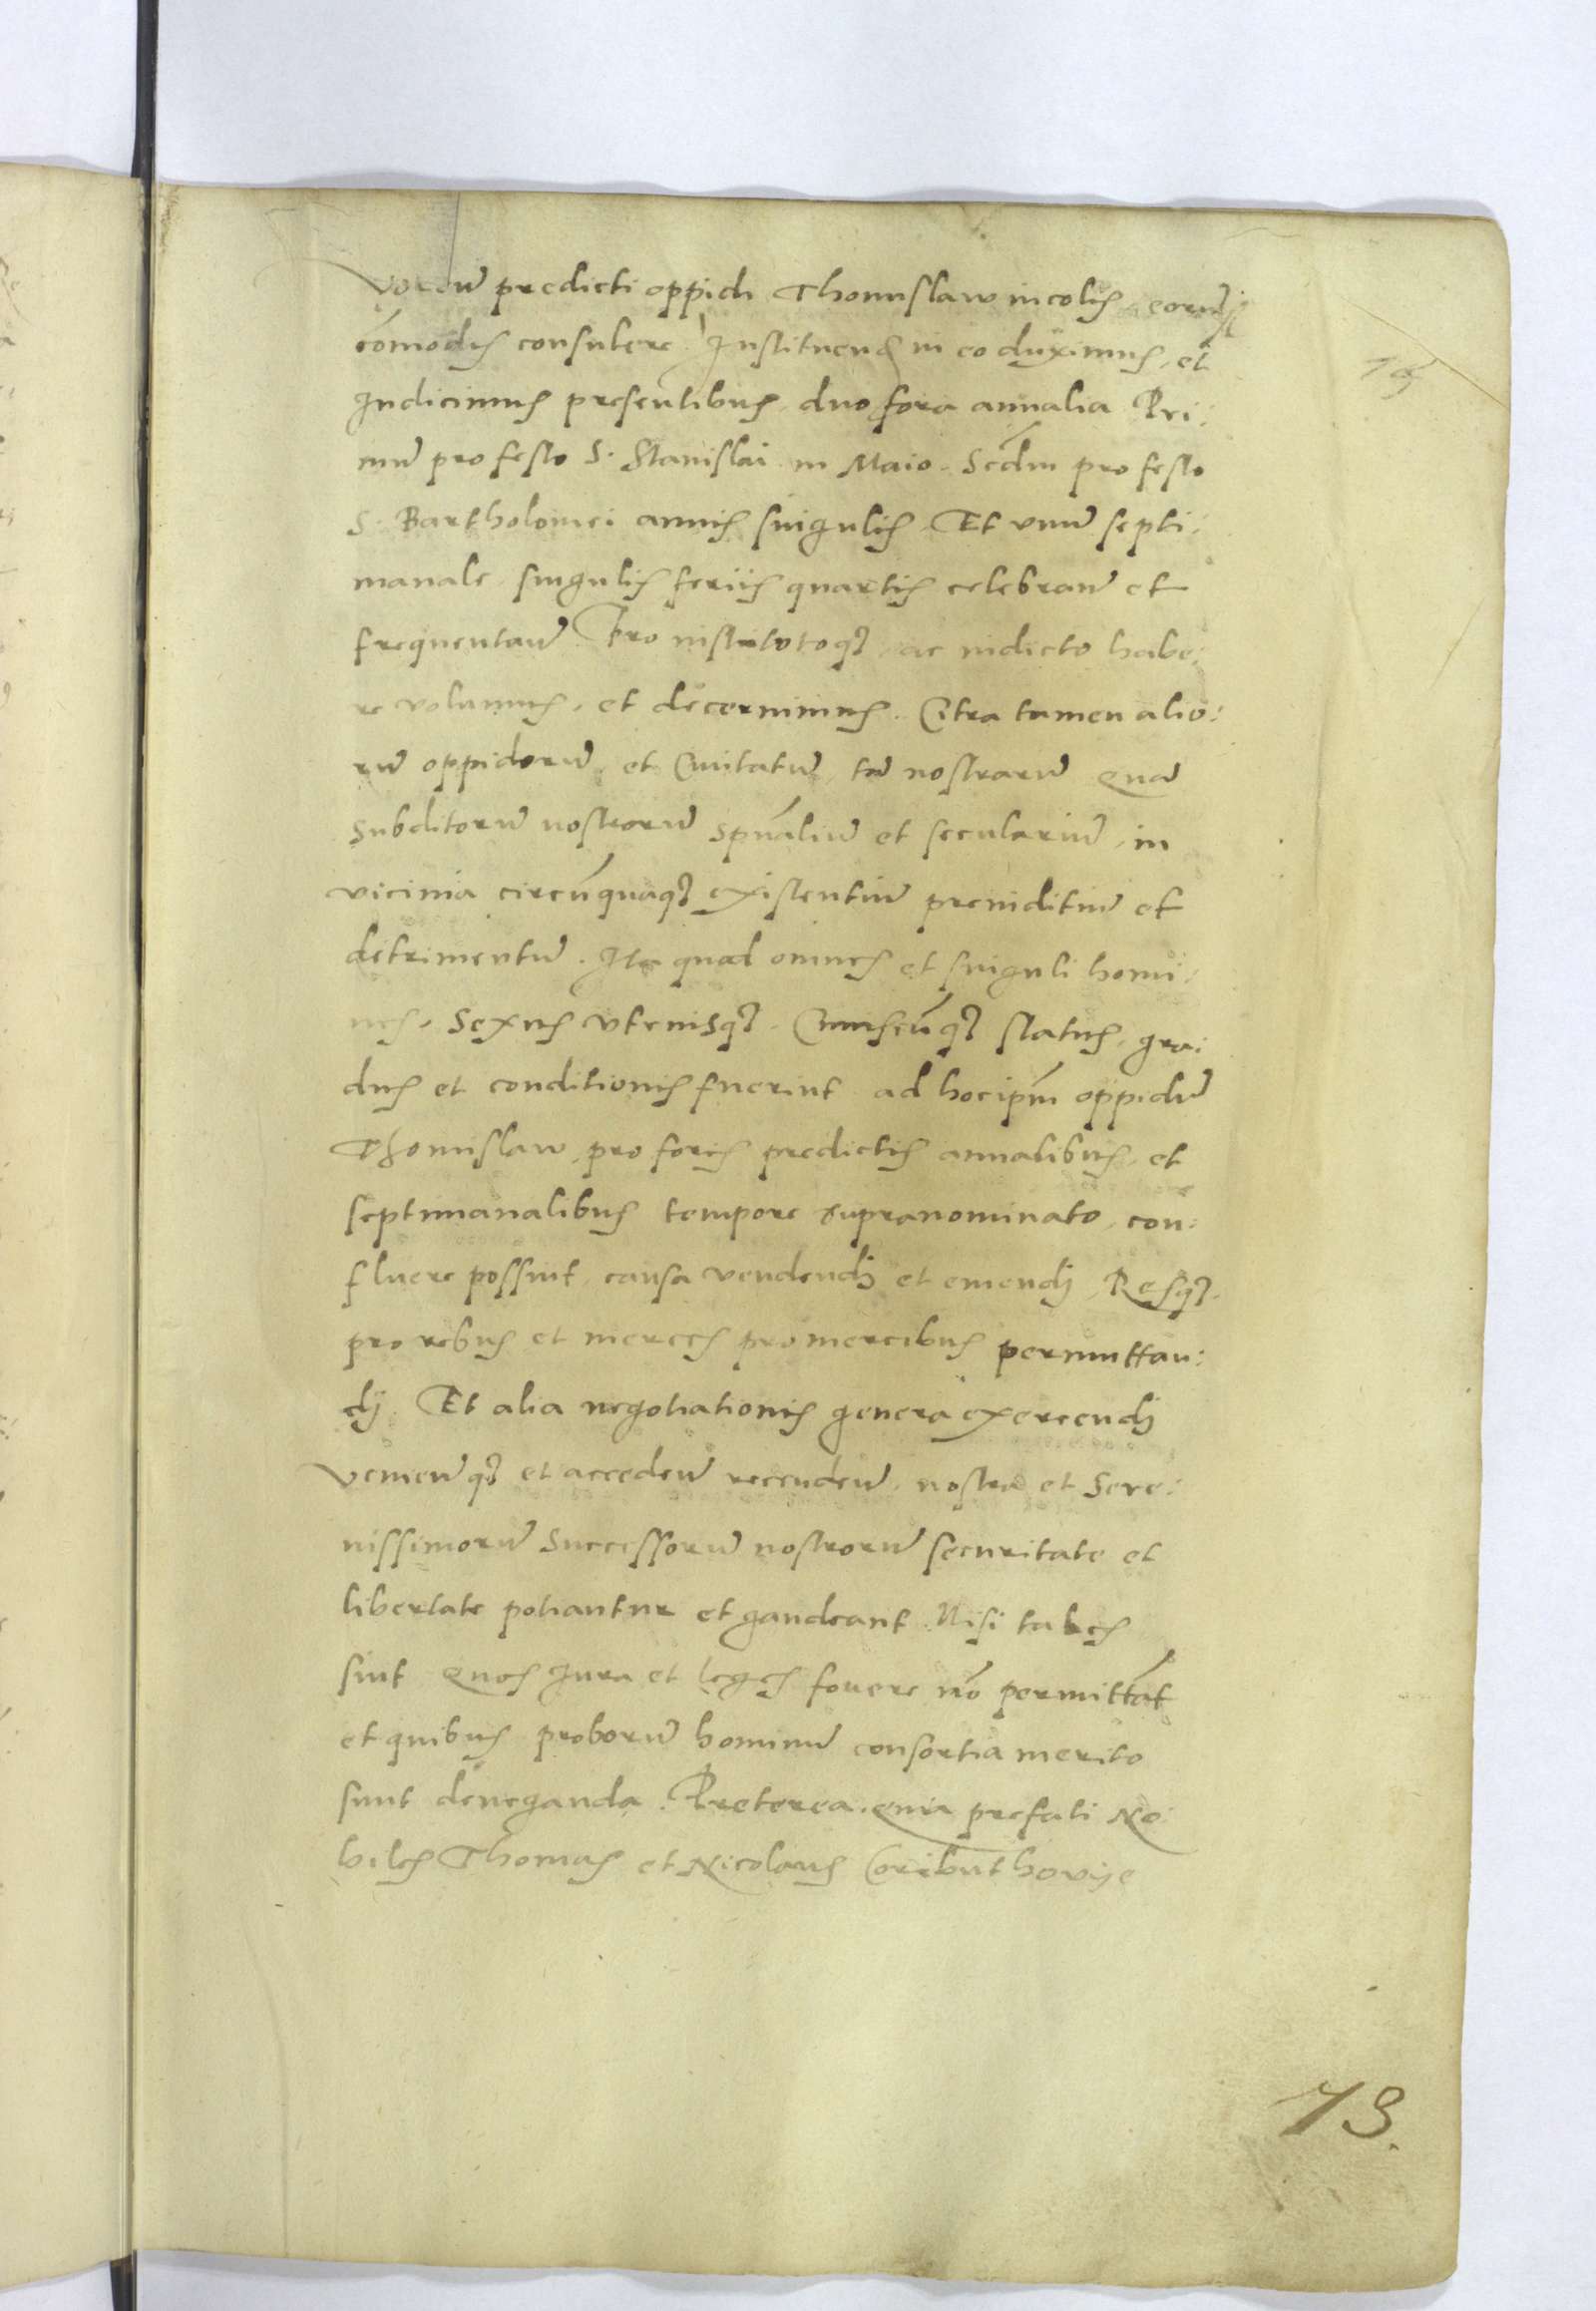 predicti oppidi Thomislaw incolis, eorūq₃
cōmodis consulere, Instituend in eo duximus, et
Indicimus presentibus, duo fora annalia Pri:
mū pro festo S. Stanislai in Maio. Secdm pro festo
S. Bartholomei annis singulis. Et unū septi:
manale, singulis feriis quartis celebranū et
frequentanū. Pro institutoq₃ ac indicto habe:
re volumus, et decernimus. Citra tamen alio:
rū oppidorū, et Civitatū, tā nostrarū quā
Subditorū nostrorū spūaliū et seculariū, in
vicinia circūquaq₃ existentiū preiuditiū et
detrimentū. Ita quod omnes et singuli homi:
nes, Sexus utriusq₃, Cuiuscūq₃ status, gra:
dus et conditionis fuerint ad hocipm oppidū
Thomislaw, pro foris predictis annalibus, et
septimanalibus tempore supranominato, con:
fluere possint, causa vendendi et emendi, Resq₃
pro rebus et merces pro mercibus permuttan:
di. Et alia negotiationis genera exercendi
Veniendq₃ et accedend recendend, nostra et Sere:
nissimorū Successorū nostrorū securitate et
libertate potiantur et gaudeant. Nisi tales
sint Quos Iura et leges fovere nō permittāt
et quibus proborū hominū consortia merito
sunt deneganda. Preterea, quia prefati No:
biles Thomas et Nicolaus Coributhovije
13.